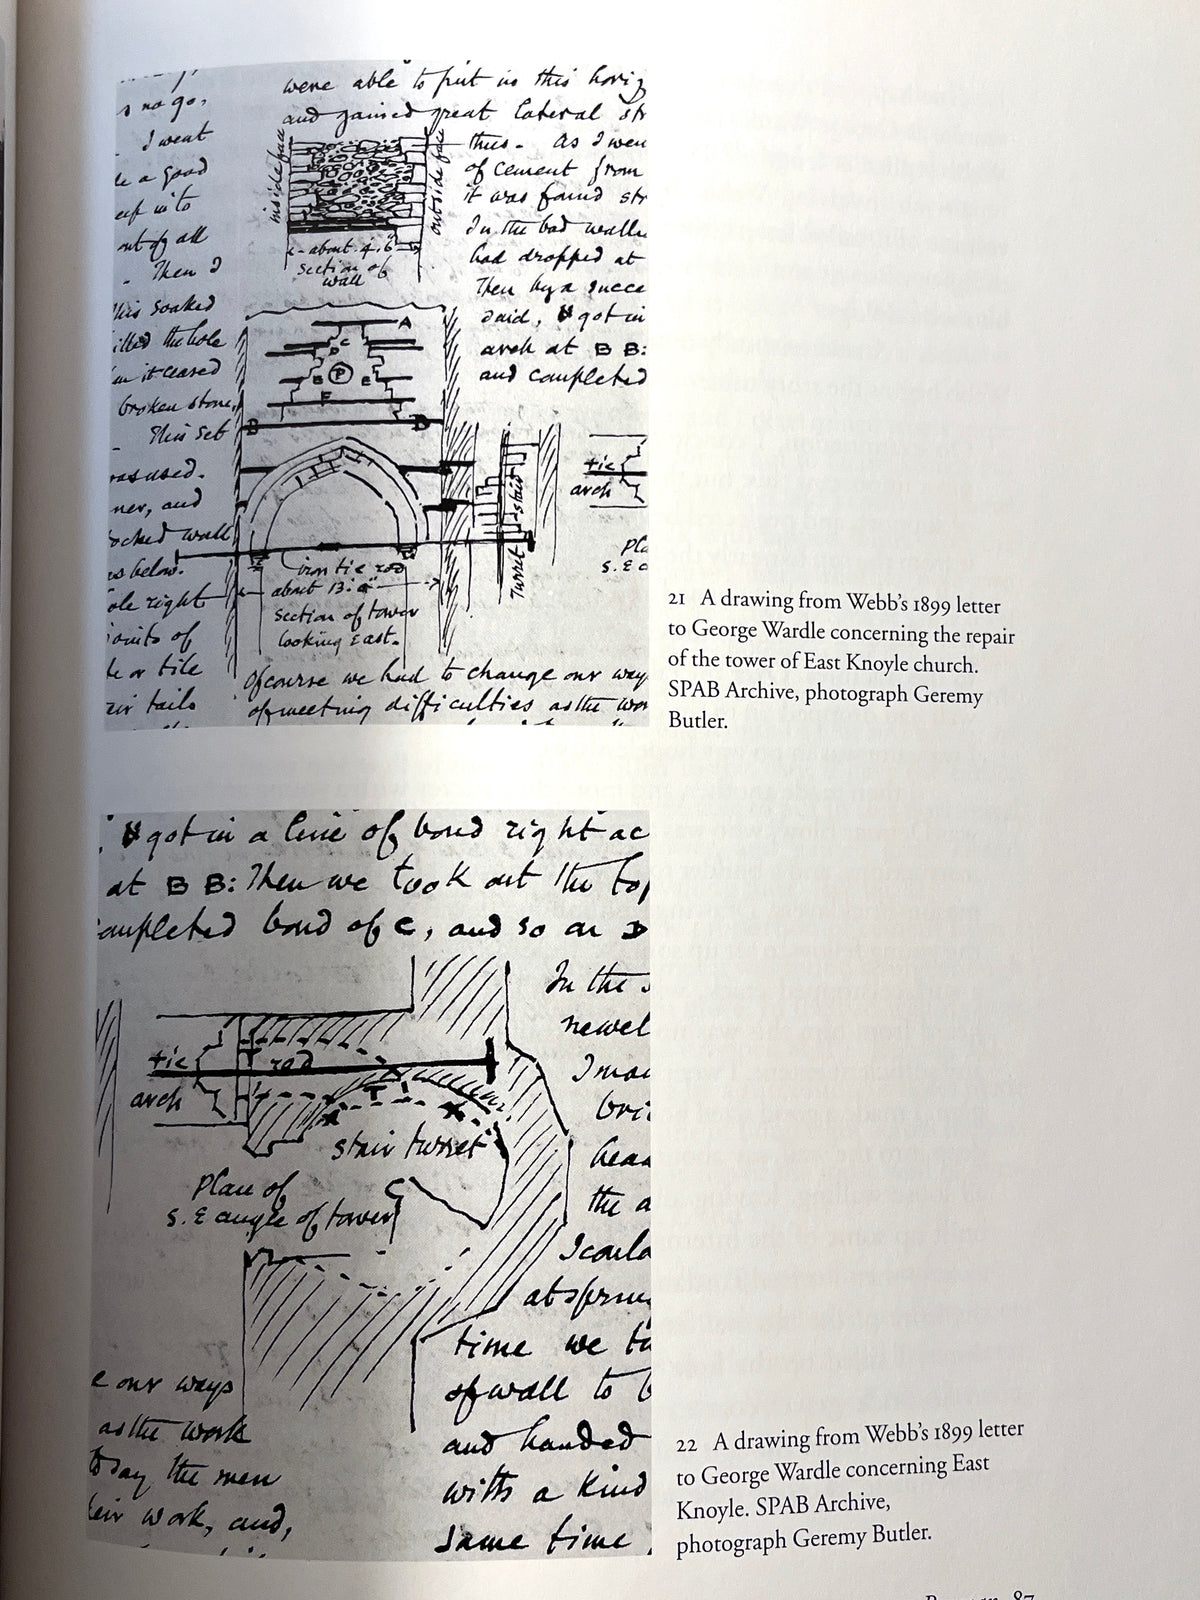 were able to put in this horiz
and gained great lateral str
s no go,
I went
le a good
into
out of all
Then I
this soaked
filled the hole
it ceased
broken stone,
This set
was used.
ner, and
ocked wall
rs below.
ole right
joints of
le or tile
eir tails
inside face
outside face
about 4.6"
section of
wall
thus. As I wen
of cement from
it was found str
In the bad walle
had dropped at
Then by a succe
said, got in
arch at B B:
and completed
A
C
D
B P E
F
B D
iron tie rod
about 13.
section of tower
looking East.
Turret stair
tie
arch
Pla
S.E a
Of course we had to change our way
of meeting difficulties as the wor
21 A drawing from Webb's 1899 letter
to George Wardle concerning the repair
of the tower of East Knoyle church.
SPAB Archive, photograph Geremy
Butler.
got in a line of bond right ac
at B B: Then we took out the top
ompleted bond of C, and so on D
tie rod
arch
T
stair turret
Plan of
S.E angle of tower
In the s
newel
I mai
bri
head
the a
I could
at sprin
time we ta
of wall to b
and handed
with a kind
same time
e our ways
as the work
to day the men
heir work, and,
22 A drawing from Webb's 1899 letter
to George Wardle concerning East
Knoyle. SPAB Archive,
photograph Geremy Butler.
87